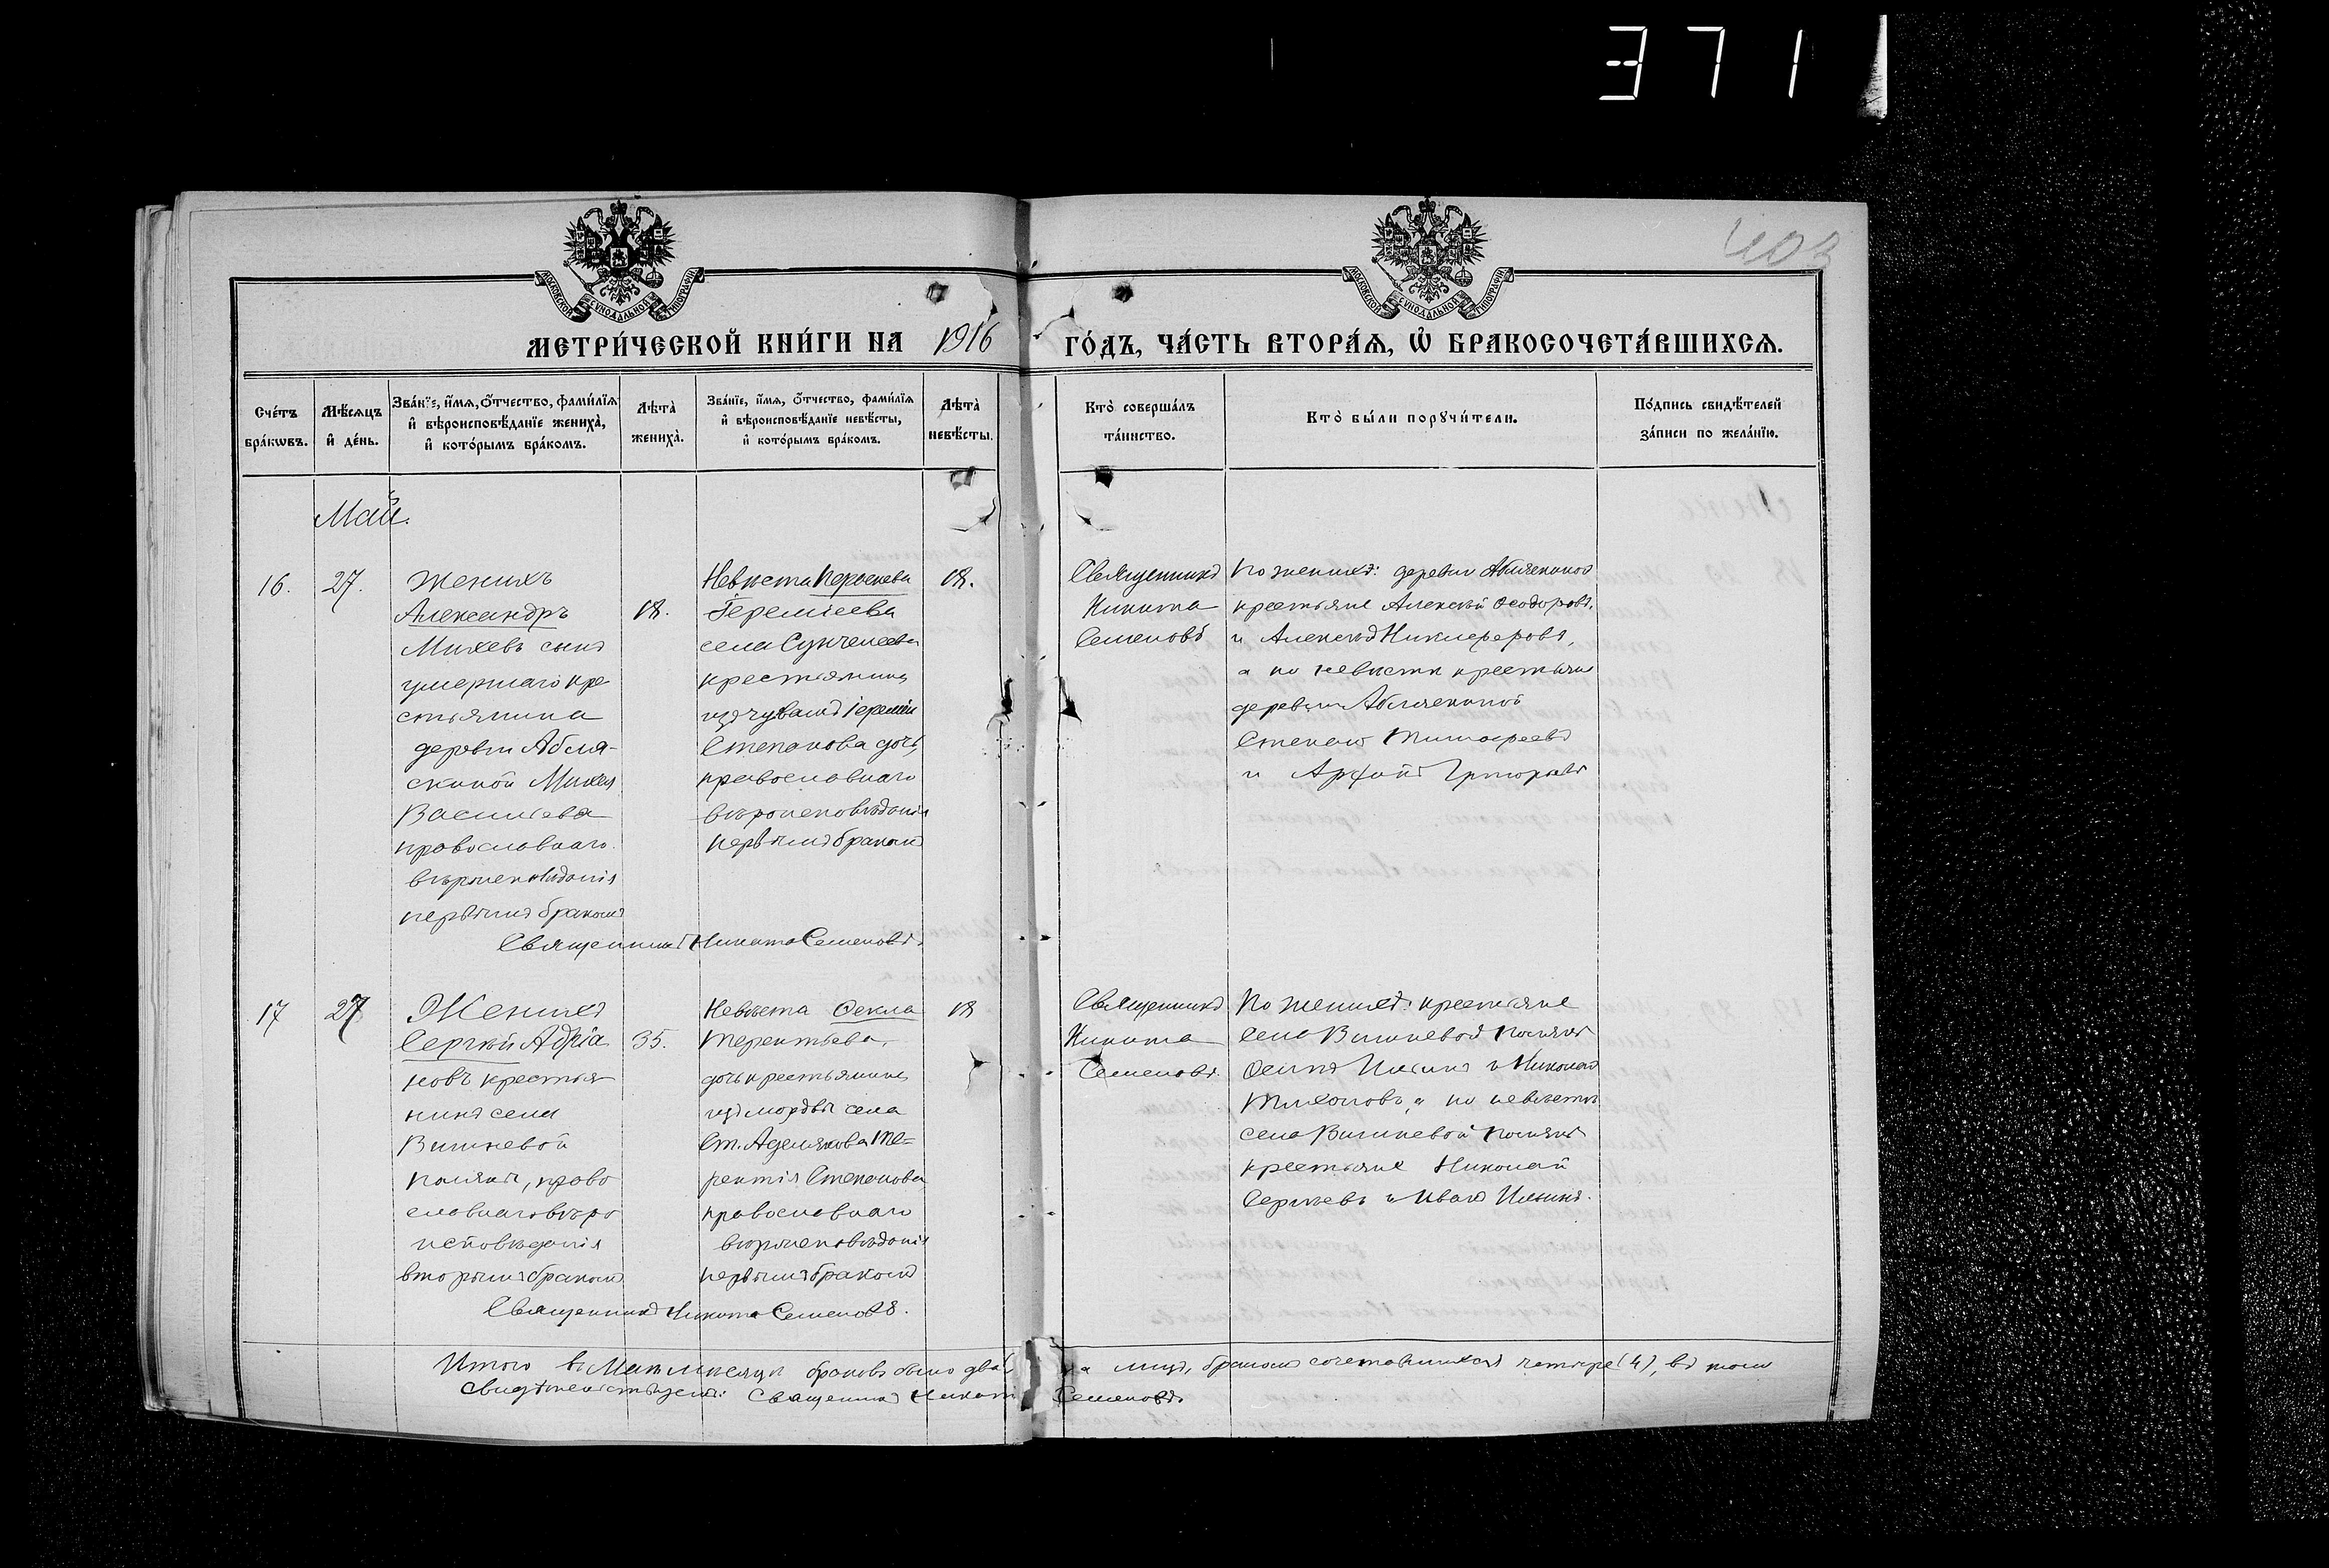 371
403
МОСКОВСКОЙ СѴНОДАЛЬНОЙ ТИПОГРАФІИ
МОСКОВСКОЙ СѴНОДАЛЬНОЙ ТИПОГРАФІИ
МЕТРИ́ЧЕСКОЙ КНИ́ГИ НА 1916 ГО́ДЪ, ЧА́СТЬ ВТОРА́Ѧ, Ѽ БРАКОСОЧЕТА́ВШИХСѦ.
Сче́тъ бра́кѡвъ.
Мѣ́сѧцъ и҆ де́нь.
Зва́нїе, и҆́мѧ, ѻ҆́тчество, фами́лїѧ
и҆ вѣроисповѣ́данїе жениха̀,
и҆ кото́рымъ бра́комъ.
Лѣта̀ жениха̀.
Зва́нїе, и҆́мѧ, ѻ҆́тчество, фами́лїѧ
и҆ вѣроисповѣ́данїе невѣ́сты,
и҆ кото́рымъ бра́комъ.
Лѣта̀ невѣ́сты.
Кто̀ соверша́лъ
та́инство.
Кто̀ бы́ли порꙋчи́тели.
По́дпись свидѣ́телей
за́писи по жела́нїю.
Май.
16.
27.
Женихъ
Александръ
Михеевъ сынъ
умершаго кре
стьянина
деревни Абля-
скиной Михея
Васильева
православнаго
вѣроисповѣданія
первымъ бракомъ
18.
Невѣста Параскева
Іереміева
села Сунчелеева
крестьянина
изъ чувашъ Іереміи
Степанова дочь,
православнаго
вѣроисповѣданія
первымъ бракомъ
18.
Священникъ Никита Семеновъ.
Священникъ
Никита
Семеновъ
По женихѣ: деревни Абляскиной
крестьяне Алексѣй Ѳеодоровъ,
и Алексѣй Никифоровъ,
а по невѣстѣ крестьяне
деревни Абляскиной
Степанъ Тимофеевъ
и Григорьевъ
17
27
Женихъ
Сергѣй Адріа
новъ крестья
нинъ села
Вишневой
поляны, право
славнаго вѣро
исповѣданія
вторымъ бракомъ
35.
Невѣста Ѳекла
Терентьева,
дочь крестьянина
изъ мордвы села
Ст. Аделякова Те-
рентія Степанова
православнаго
вѣроисповѣданія
первымъ бракомъ
18
Священникъ Никита Семеновъ.
Священникъ
Никита
Семеновъ.
По женихѣ: крестьяне
села Вишневой поляны
Осипъ Ильинъ и Николай
Тихоновъ, а по невѣстѣ
села Вишневой поляны
крестьяне Николай
Сергѣевъ и Иванъ Ильинъ.
Итого въ Маѣ мѣсяцѣ браковъ было два а лицъ, бракомъ сочетавшихся четыре (4), въ томъ
свидѣтельствуемъ: Священникъ Никита Семеновъ.